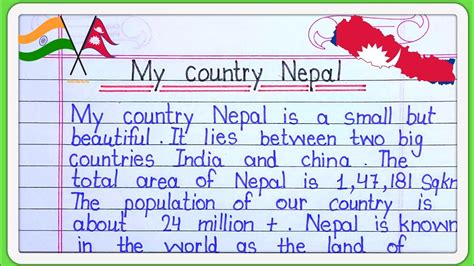 My country Nepal
My country Nepal is a small but
beautiful. It lies between two big
countries India and china. The
total area of Nepal is 1,47,181 Sqkm
The population of our country is
about 24 million +. Nepal is known
in the world as the land of